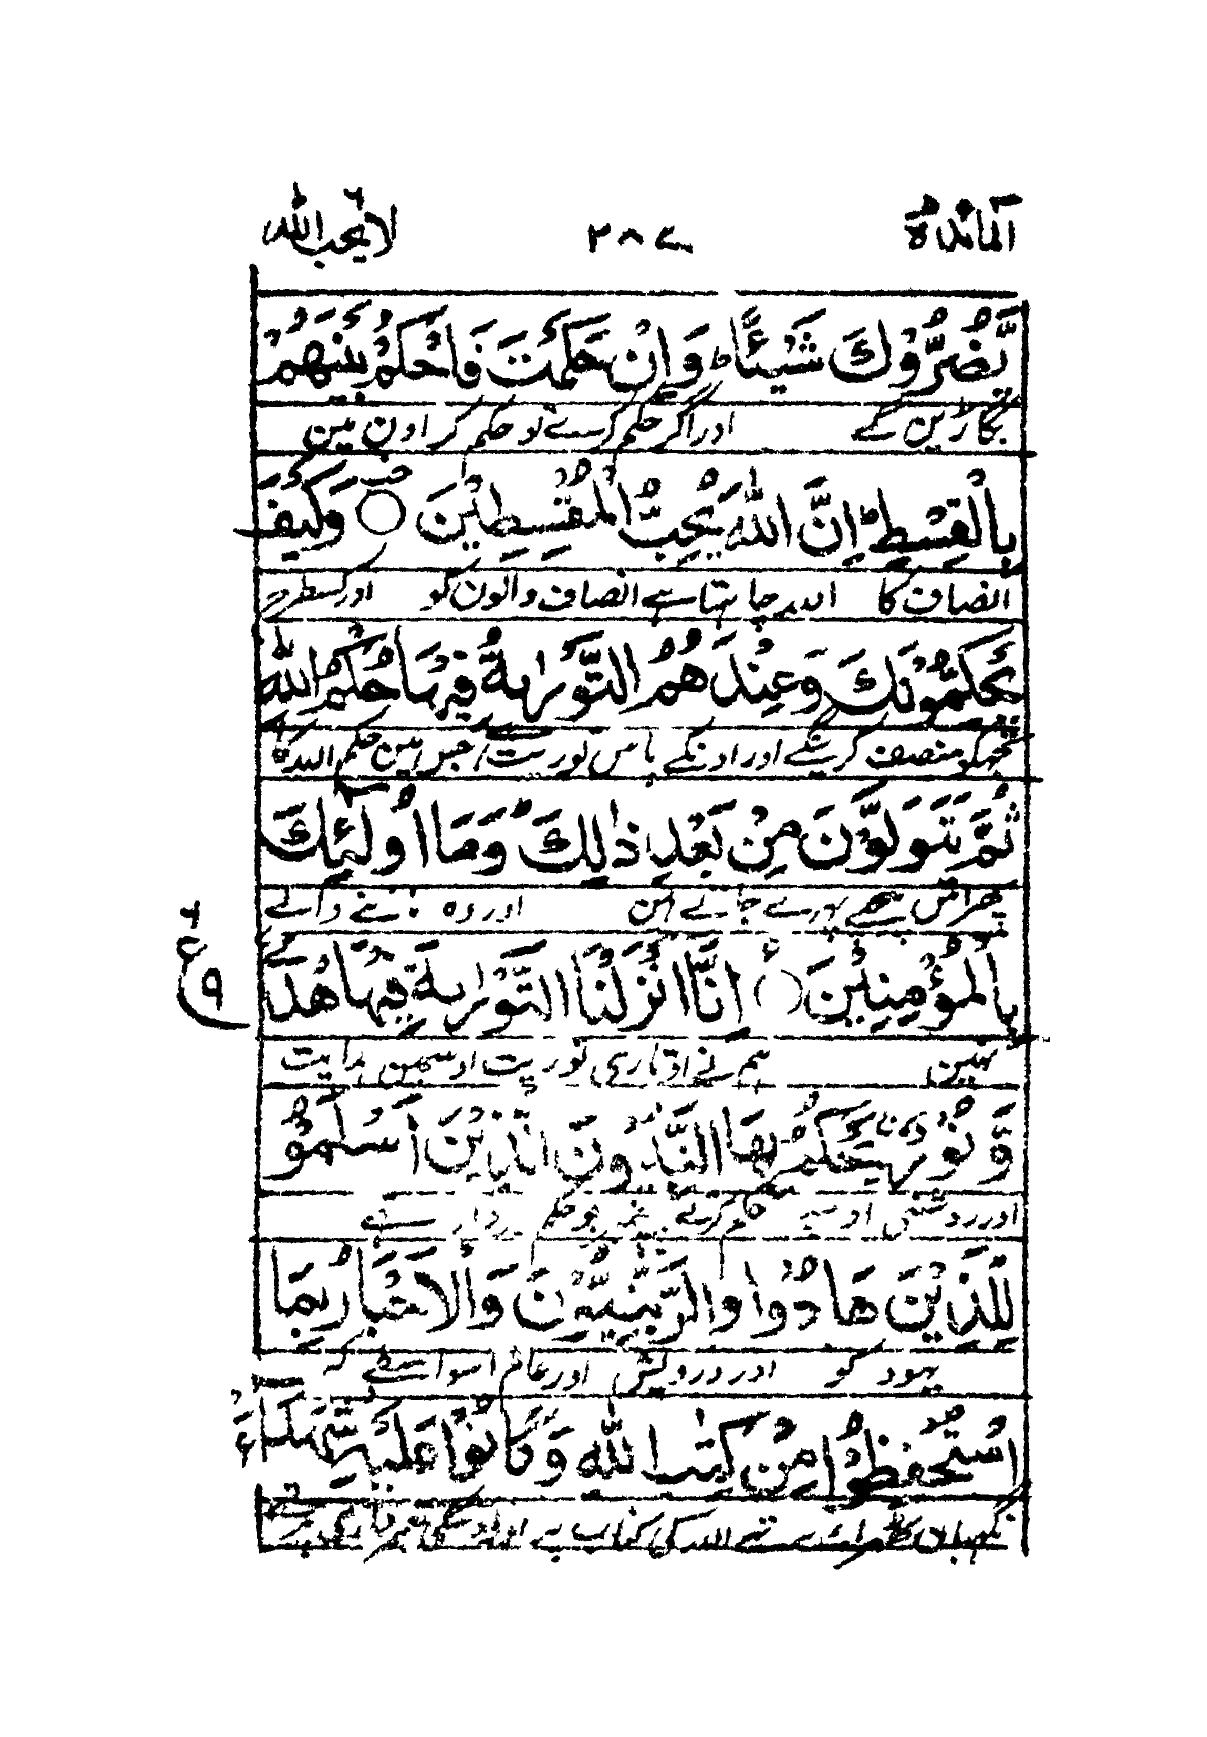 المائدة ٢٨٧ لا يحب الله
يَّضُرُّوْكَ شَيْئًا ط وَاِنْ حَكَمْتَ فَاحْكُمْ بَيْنَهُمْ
بگاڑین گے اور اگر حکم کرے تو حکم کر اون مین
بِالْقِسْطِ ط اِنَّ اللّٰهَ يُحِبُّ الْمُقْسِطِيْنَ ○ وَكَيْفَ
انصاف کا اللہ چاہتا ہے انصاف والون کو اور کسطرح
يُحَكِّمُوْنَكَ وَعِنْدَهُمُ التَّوْرٰىةُ فِيْهَا حُكْمُ اللّٰهِ
تجہکو منصف کرینگے اور اونکے پاس توریت جس مین حکم اللہ کا
ثُمَّ يَتَوَلَّوْنَ مِنْۢ بَعْدِ ذٰلِكَ ط وَمَآ اُولٰٓئِكَ
پھر اس پیچھے پہرے جاتے ہین اور وہ ماننے والے
بِالْمُؤْمِنِيْنَ ○ اِنَّآ اَنْزَلْنَا التَّوْرٰىةَ فِيْهَا هُدًى
ع ٩
نہین ہم نے اوتاری توریت اوسمین ہدایت
وَّنُوْرٌ يَحْكُمُ بِهَا النَّبِيُّوْنَ الَّذِيْنَ اَسْلَمُوْا
اور روشنی اوسپر حکم کرتے پیغمبر جو حکم بردار تھے
لِلَّذِيْنَ هَادُوْا وَالرَّبّٰنِيُّوْنَ وَالْاَحْبَارُ بِمَا
یہود کو اور درویش اور عالم اسواسطے کہ
اسْتُحْفِظُوْا مِنْ كِتٰبِ اللّٰهِ وَكَانُوْا عَلَيْهِ شُهَدَآءَ
نگہبان اللہ کی کتاب پر